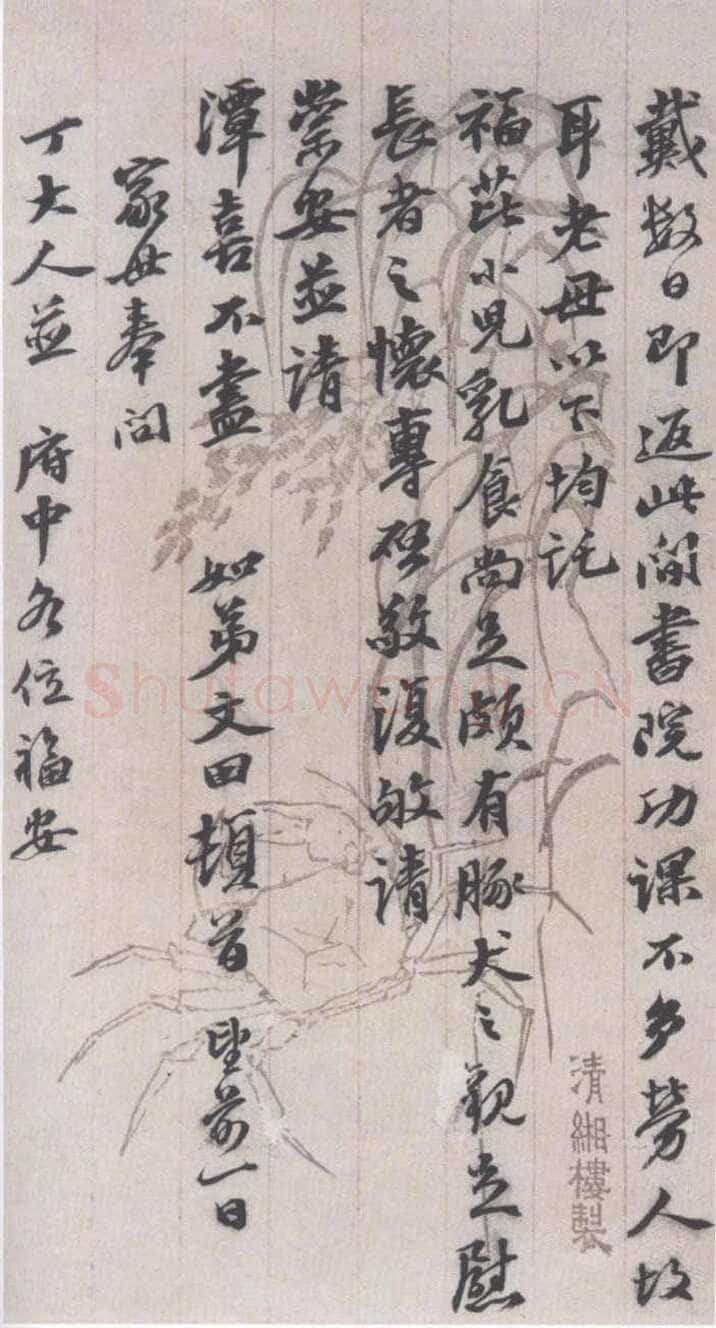 戴數日即返此間書院功課不多勞人故
耳老母以下均託
福茈小兒乳食尚足頗有豚犬之觀足慰
長者之懷專磶敬復敬請
崇安並請
潭喜不盡 如弟文田頓首 望前一日
家母奉問
丁大人並 府中各位福安
清緗樓製
Shufawang.CN